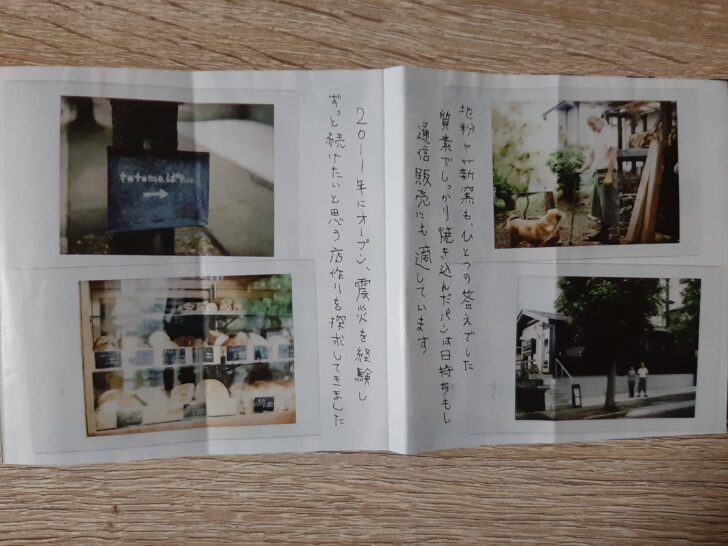 totomaぱん
2011年にオープン、震災を経験し
ずっと続けたいと思う店作りを探求してきました
地粉や薪窯も、ひとつの答えでした
質素でしっかり焼き込んだパンは日持ちもし
通信販売にも適しています